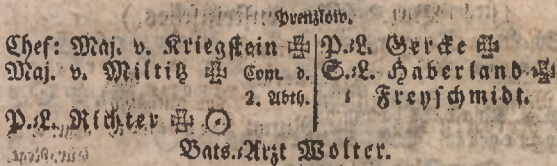 Prenzlow.
Chef: Maj. v. Kriegstein ✠
Maj. v. Miltitz ✠ Com. d.
2. Abth.
P.-L. Richter ✠
P.-L. Gercke ✠
S.-L. Haberland ✠
: Freyschmidt.
Bats.-Arzt Wolter.